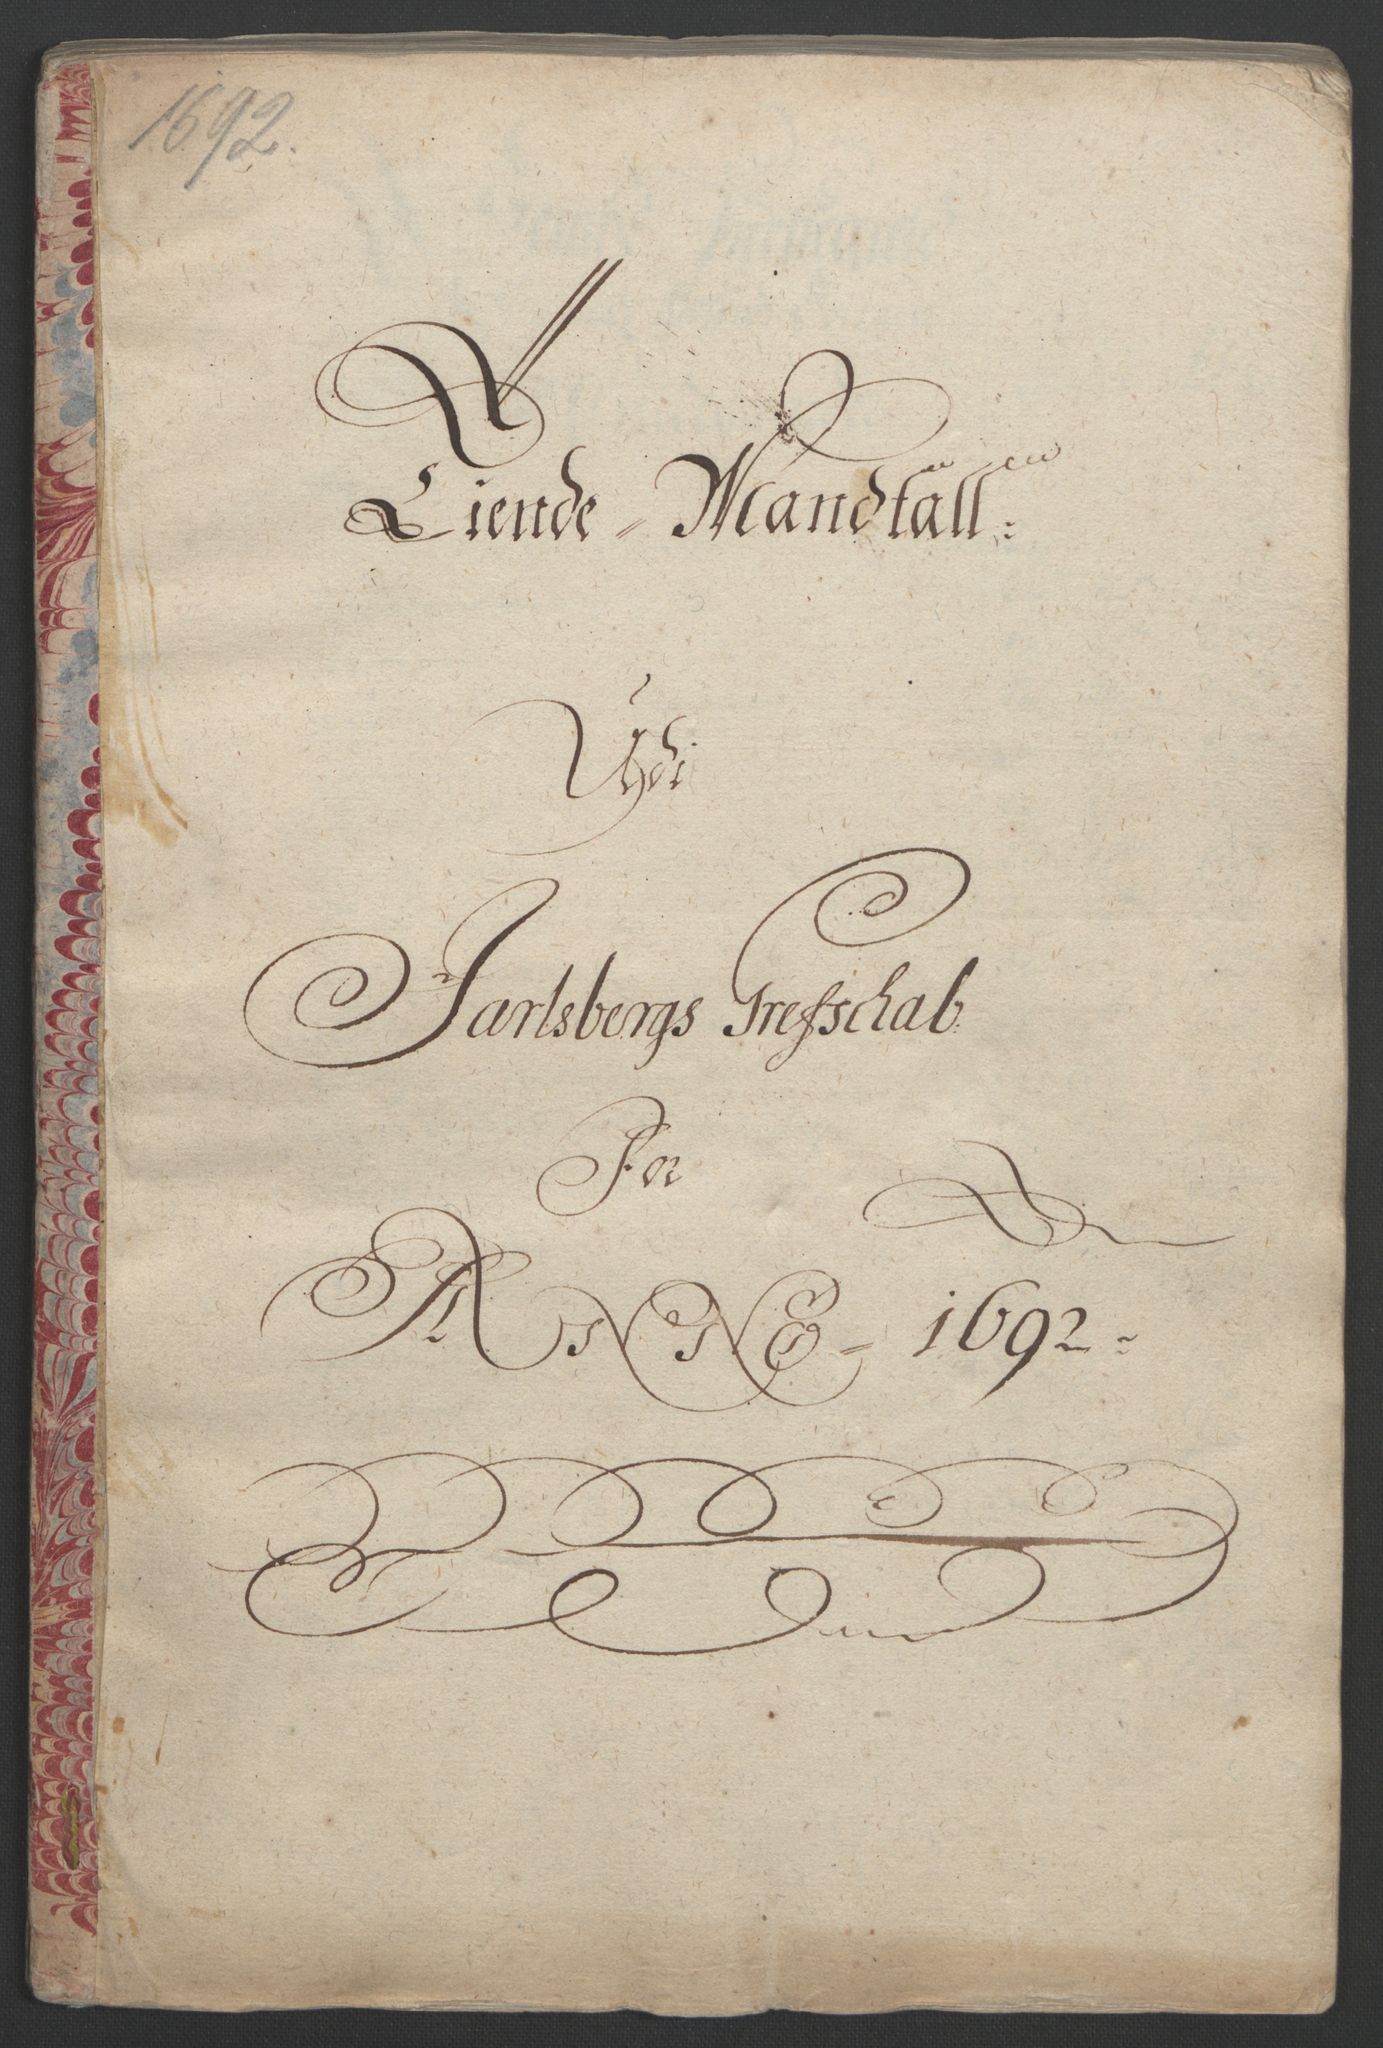 1692.
Tiende - Mandtall:
Udi
Jarlsbergs Grefschab.
For
ANNO - 1692 -